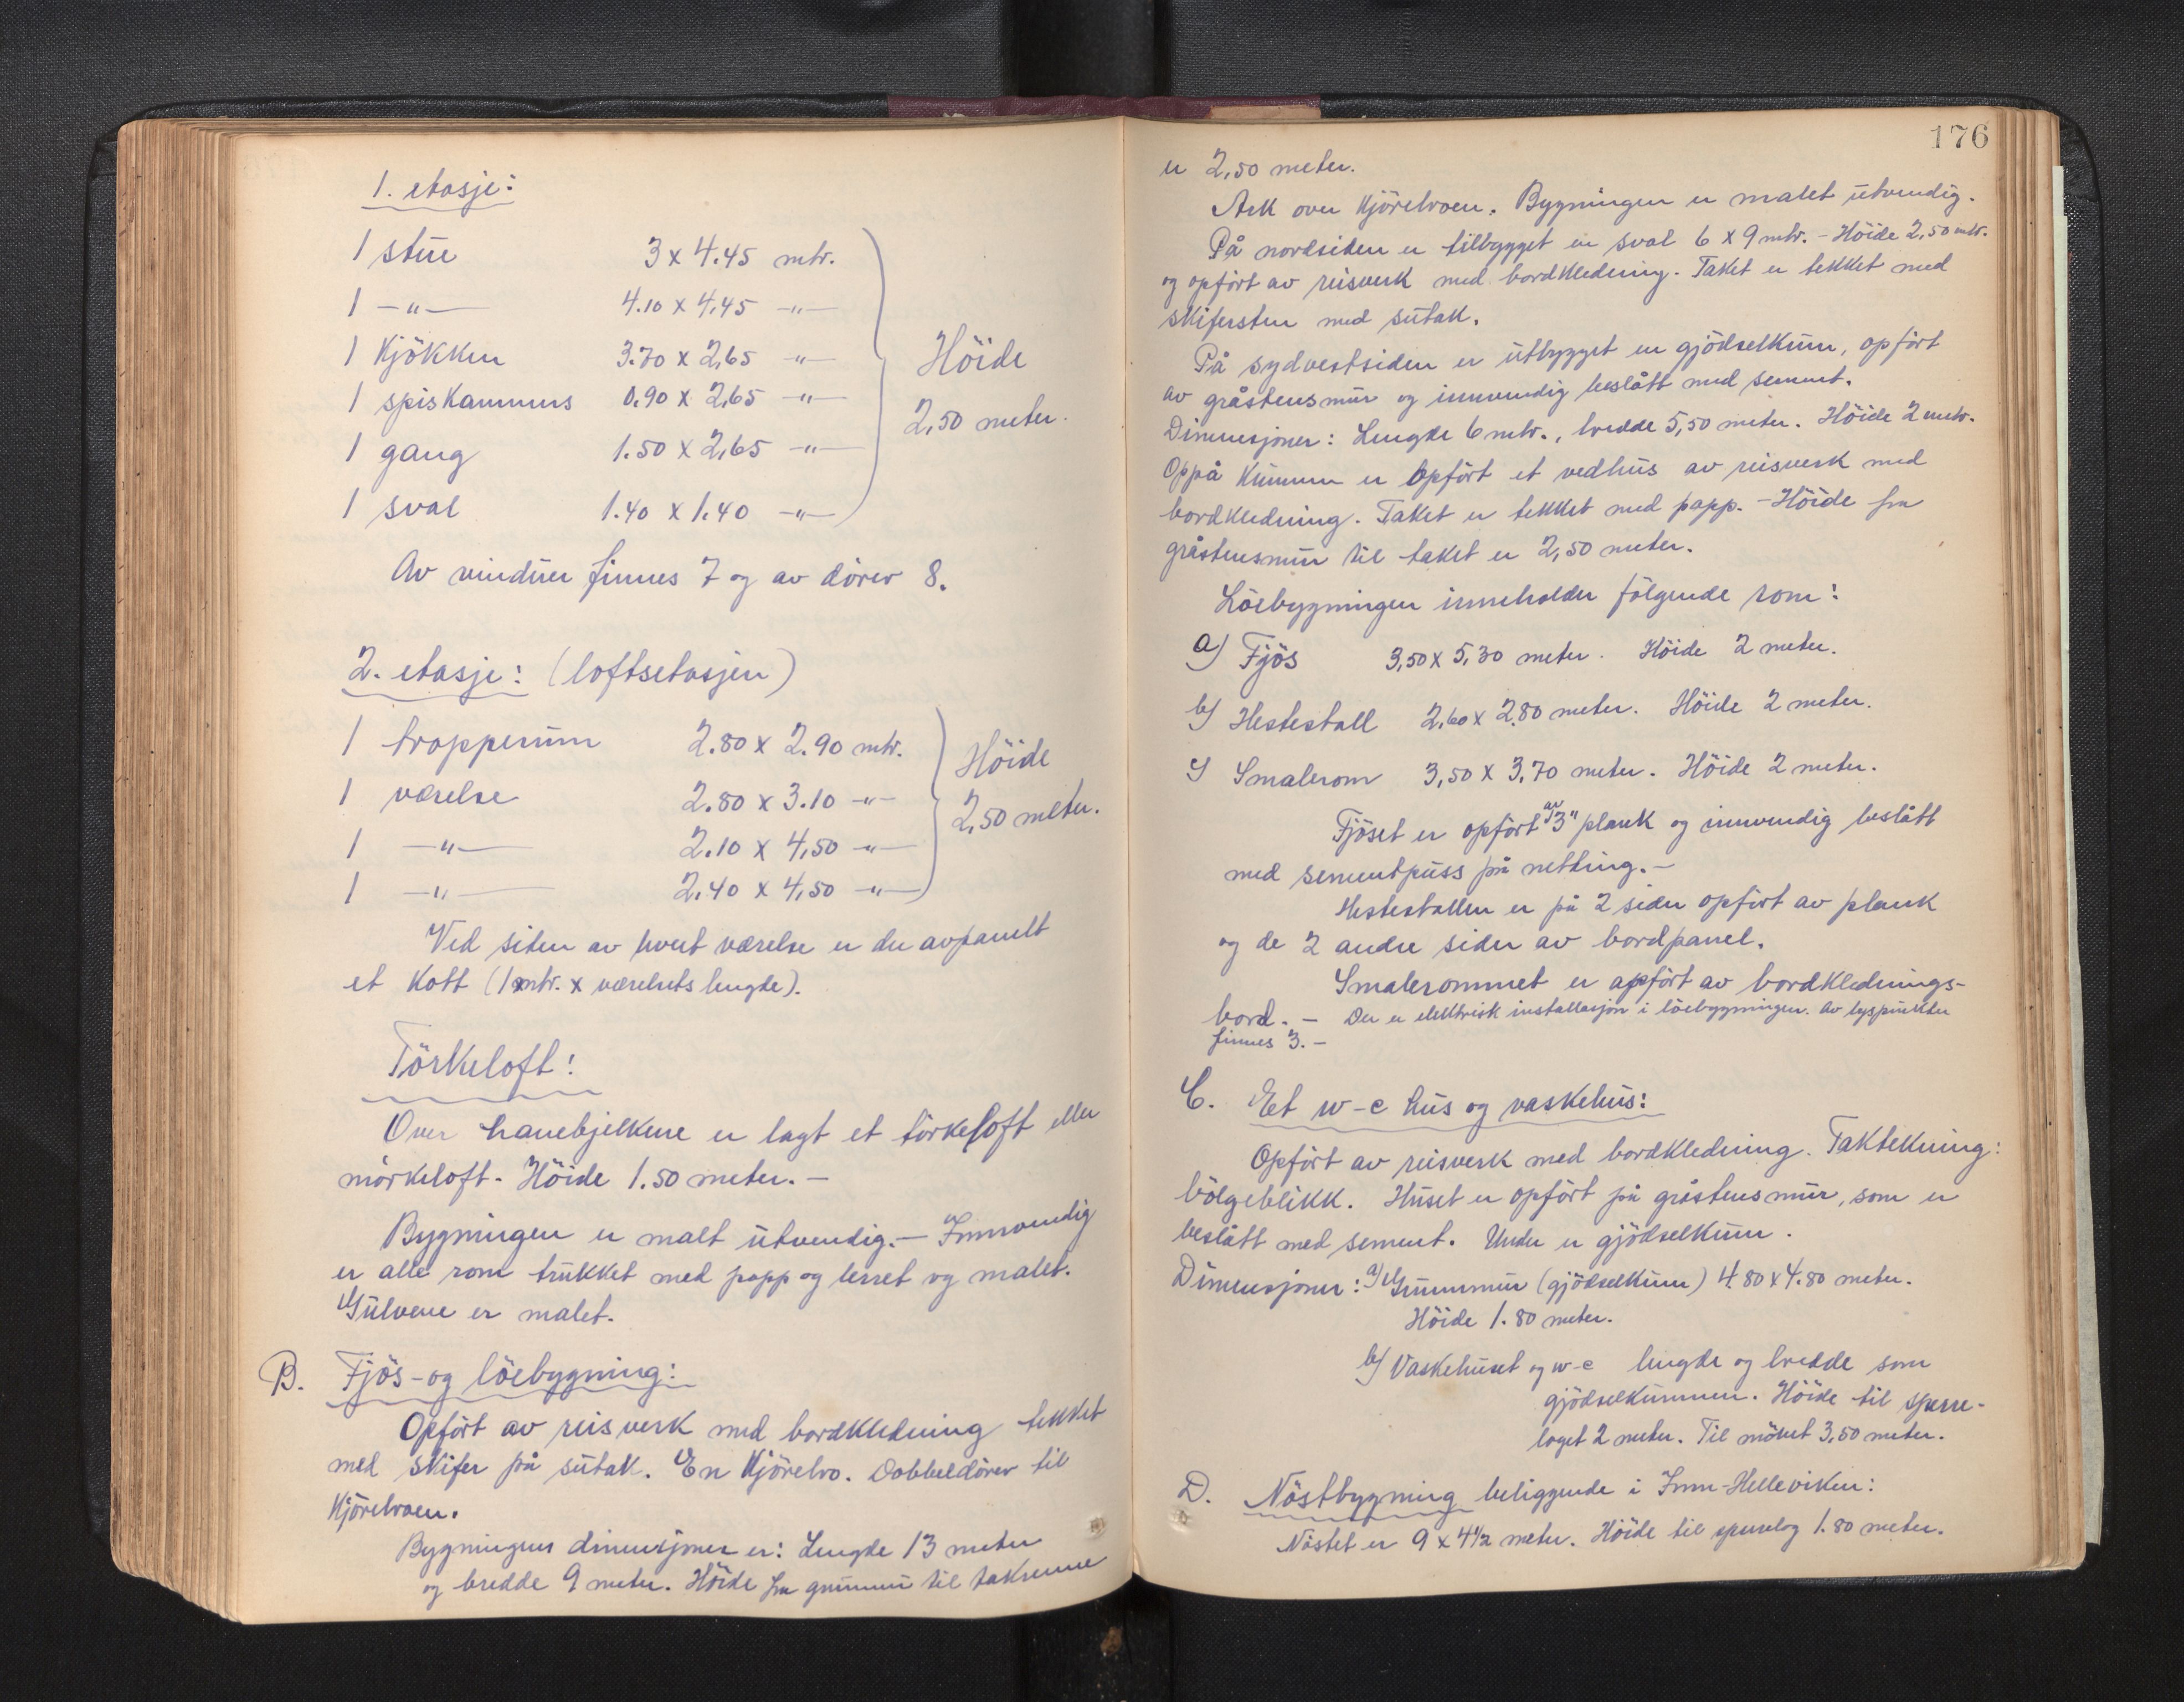 1. etasje:
1 stue 3 x 4.45 mtr.
1 -"- 4.10 x 4,45 -"-
1 Kjökken 3.70 x 2,65 -"-
1 spiskammers 0.90 x 2,65 -"-
1 gang 1.50 x 2,65 -"-
1 sval 1.40 x 1.40 -"-
Höide
2,50 meter.
Av vinduer finnes 7 og av dörer 8.
2. etasje: (loftsetasjen)
1 trapperum 2.80 x 2.90 mtr.
1 værelse 2.80 x 3.10 -"-
1 -"- 2.10 x 4,50 -"-
1 -"- 2.40 x 4,50 -"-
Höide
2,50 meter.
Ved siden av hvert værelse er der avpanelt
et Kott (1 mtr. x værelsets lengde).
Törkeloft:
Over hanebjelkene er lagt et törkeloft eller
mörkeloft. Höide 1.50 meter. —
Bygningen er malt utvendig. — Innvendig
er alle rom trukket med papp og lerret og malet.
Gulvene er malet.
B. Fjös- og löebygning:
Opfört av reisverk med bordkledning tekket
med skifer på sutak. En Kjörebro. Dobbeldörer til
Kjörebroen.
Bygningens dimensjoner er: Lengde 13 meter
og bredde 9 meter. Höide fra grunnmur til takrenne
176
er 2,50 meter.
Ark over Kjörebroen. Bygningen er malet utvendig.
På nordsiden er tilbygget en sval 6 x 9 mtr. - Höide 2,50 mtr.
og opfört av reisverk med bordkledning. Taket er tekket med
skifersten med sutak.
På sydvestsiden er utbygget en gjödselkum, opfört
av gråstensmur og innvendig beslått med sement.
Dimensjoner: Lengde 6 mtr., bredde 5,50 meter. Höide 2 mtr.
Oppå Kummen er opfört et vedhus av reisverk med
bordkledning. Taket er tekket med papp. - Höide fra
gråstensmur til taket er 2,50 meter.
Löebygningen inneholder fölgende rom:
a) Fjös 3,50 x 5,30 meter. Höide 2 meter.
b) Hestestall 2,60 x 2.80 meter. Höide 2 meter.
c) Smalerom 3,50 x 3,70 meter. Höide 2 meter.
Fjöset er opfört av 3" plank og innvendig beslått
med sementpuss på netting. —
Hestestallen er på 2 sider opfört av plank
og de 2 andre sider av bordpanel.
Smalerommet er opfört av bordklednings-
bord. — Der er elektrisk installasjon i löebygningen. Av lyspunkter
finnes 3. —
C. Et w-c hus og vaskehus:
Opfört av reisverk med bordkledning. Taktekning:
bölgeblikk. Huset er opfört på gråstensmur, som er
beslått med sement. Under er gjödselkum.
Dimensjoner: a) Grunnmur (gjödselkum) 4.80 x 4.80 meter.
Höide 1.80 meter.
b) Vaskehuset og w-c lengde og bredde som
gjödselkummen. Höide til sperre-
laget 2 meter. Til mönet 3,50 meter.
D. Nöstbygning beliggende i Inn-Helleviken:
Nöstet er 9 x 4 1/2 meter. Höide til sperrelag 1.80 meter.